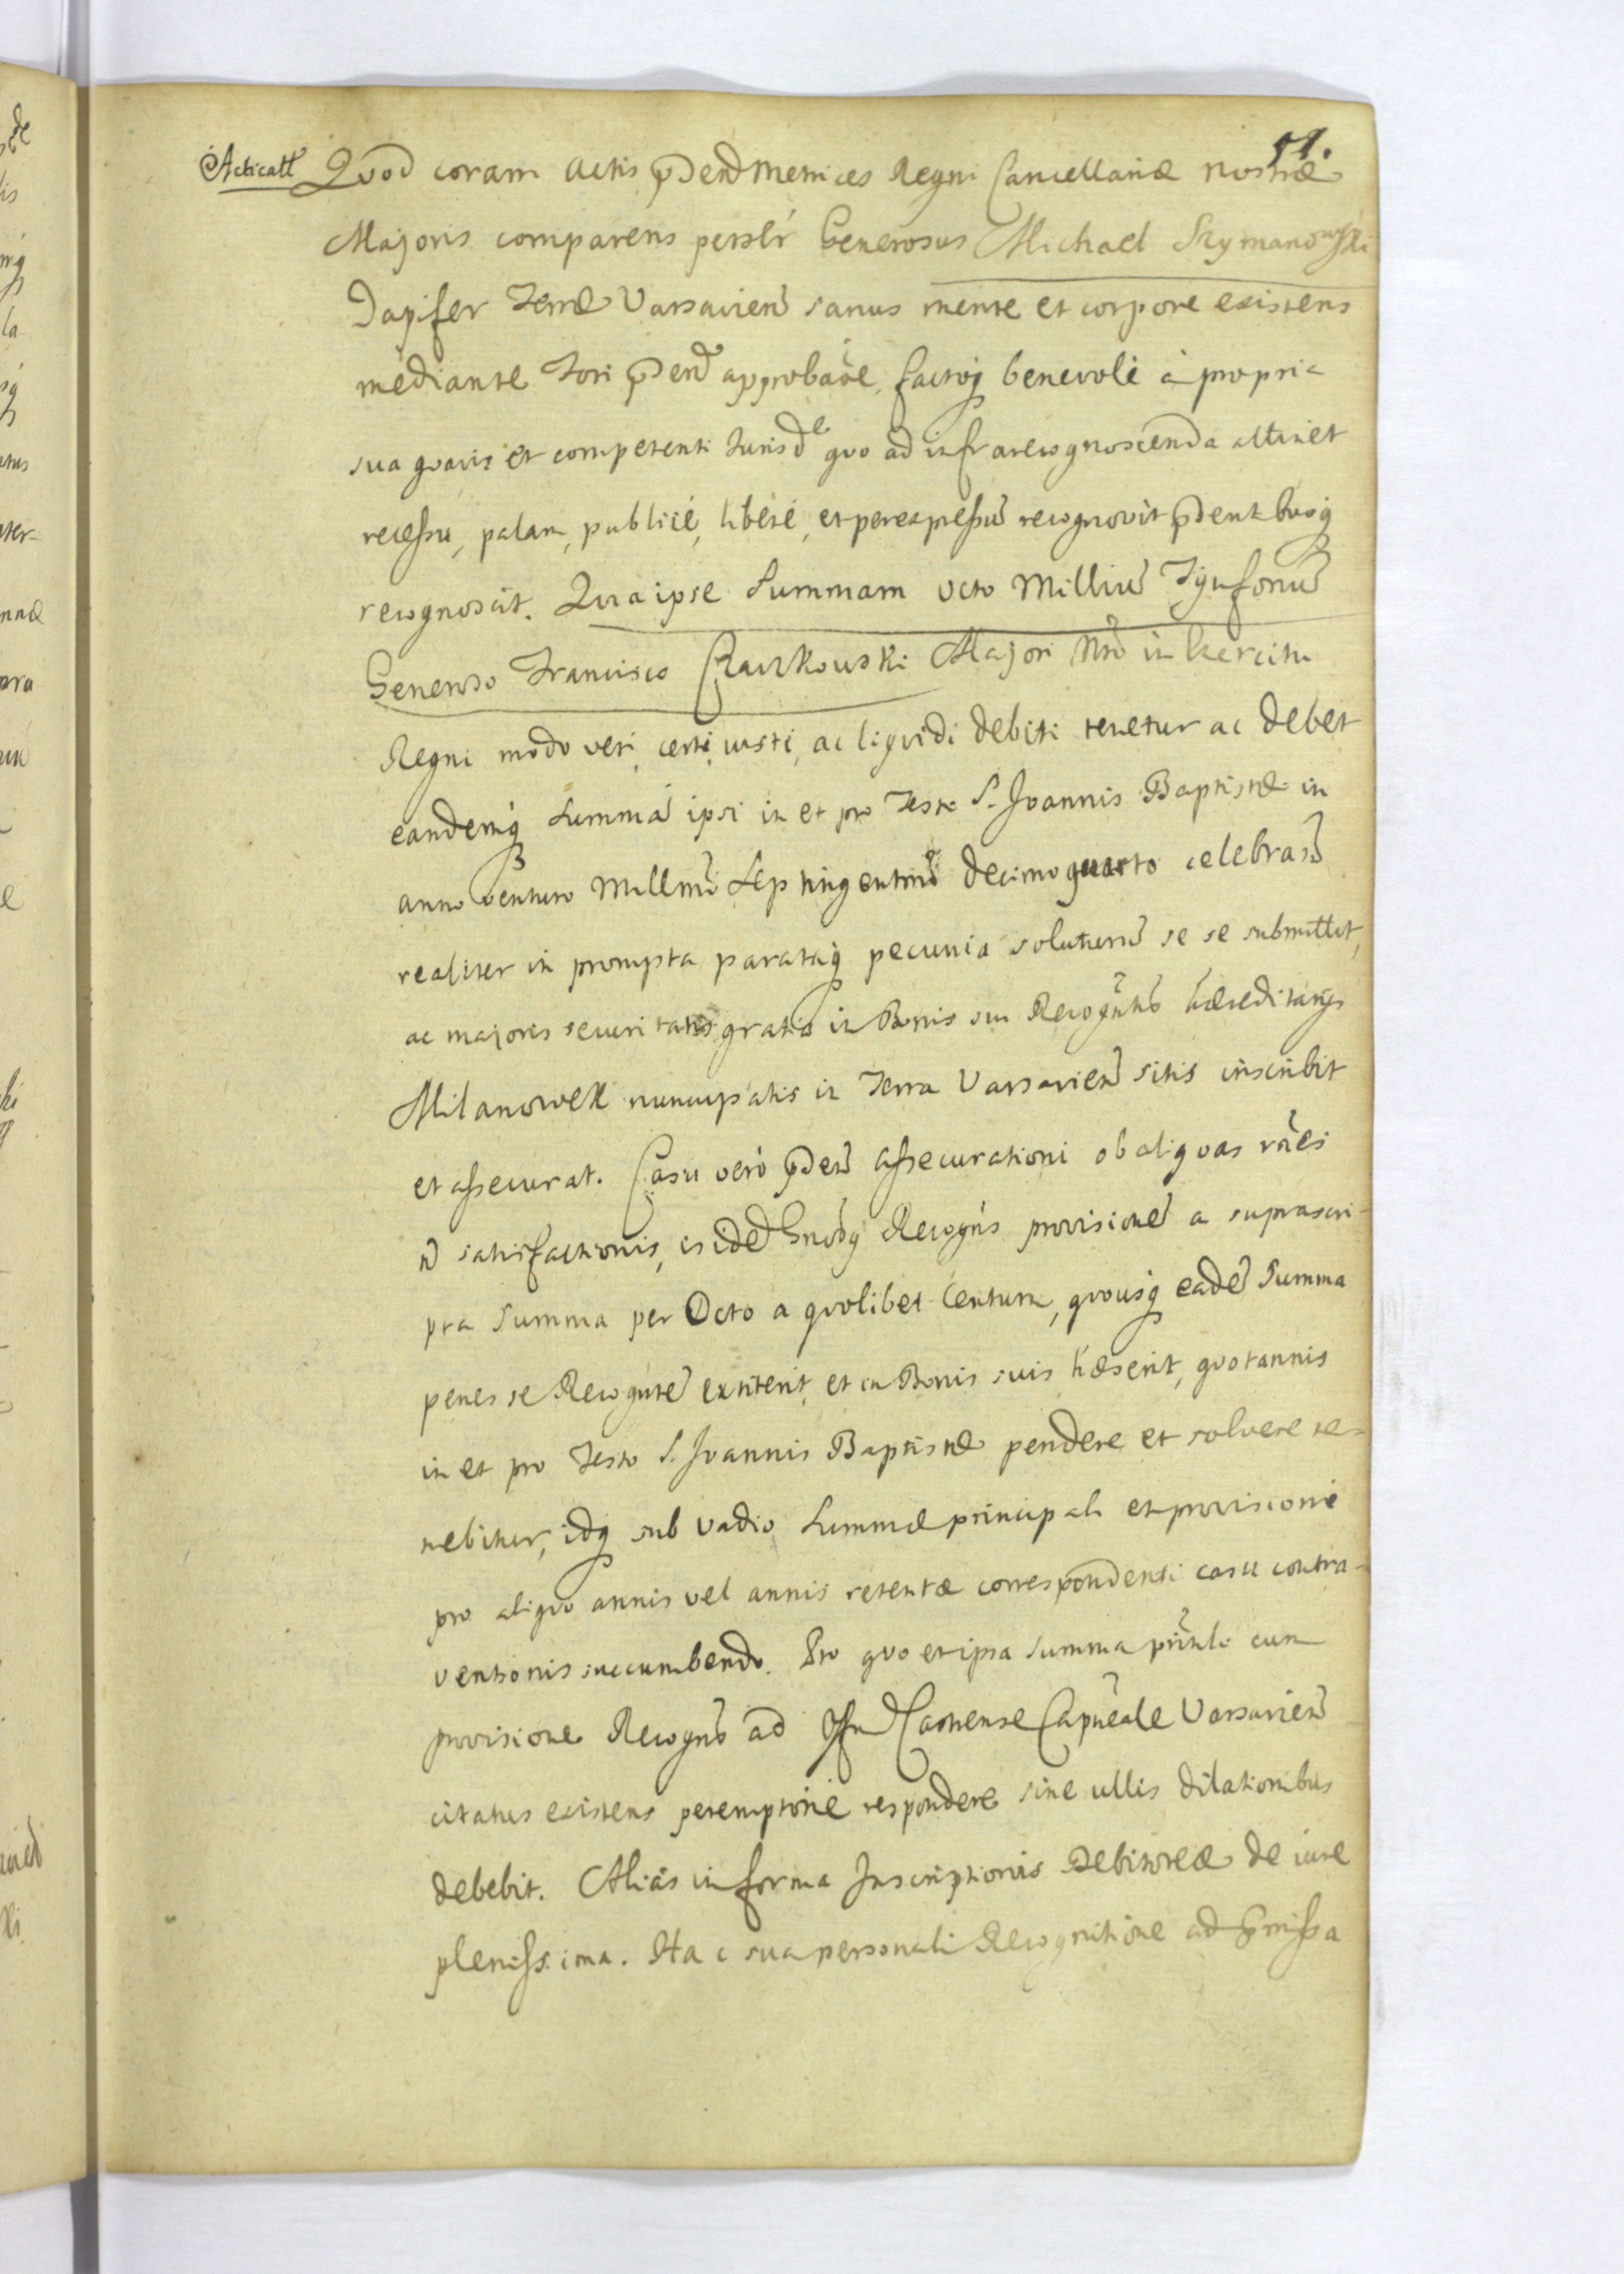 51.
Acticatt Quod coram Actis p̃dend Metrices Regni Cancellariæ nostræ
Majoris comparens persĺr Generosus Michael Szymanowski
Dapifer Terræ Varsavien̄ sanus mente et corpore existens
mediante Fori p̃den̄ approbãoe, factoq; benevolè à propria
sua quavis et competenti Jurisdᵉ quo ad infrarecognoscenda attinet
recessu, palam, publicè, liberè, et perexpressū recognovit p̃dentibusq;
recognoscit. Quia ipse Summam octo Milliū Tynfonū
Generoso Francisco Raczkowski Majori Nro in Exercitu
Regni modo veri, certi, iusti, ac liquidi debiti tenetur ac debet
eandemq; Summā ipsi in et pro Festo S. Joannis Baptistæ in
anno venturo Millmō Septingentmō decimo quarto celebrañ
realiter in prompta parataq; pecunia soluturū se se submittit,
ac majoris securitatis gratiâ in Bonis sui Recogñtis hæreditarijs
Milanowek nuncupatis in Terra Varsavien̄ sitis inscribit
et assecurat. Casu verò p̃den̄ assecurationi ob aliquas rães
ñ satisfactionis, is idē Gnrosq; Recogñs provisionē a suprascri-
pta Summa per Octo a quolibet Centum, quousq; eadē Summa
penes se Recogntē extiterit, et in Bonis suis hæserit, quotannis
in et pro Festo S. Joannis Baptistæ pendere et solvere te-
nebitur, idq; sub vadio Summæ principali et provisioni
pro aliquo annis vel annis retentæ correspondenti casu contra-
ventionis succumbendo. Pro quo et ipsa summa prĩnli cum
provisione Recogñs ad Castrense Capñeale Varsavien̄
citatus existens peremptoriè respondere sine ullis dilationibus
debebit. Aliàs in forma Inscriptionis Debitoreæ de iure
plenissima. Hac sua personali Recognitione ad p̃missa